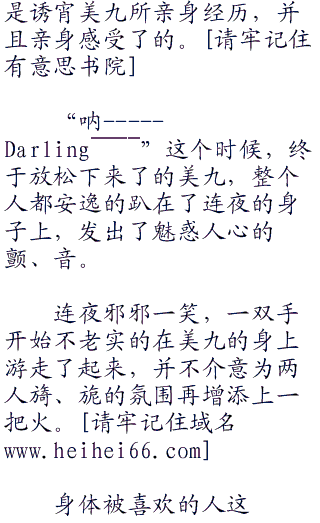 是诱宵美九所亲身经历，并
且亲身感受了的。[请牢记住
有意思书院]
“呐-----
Darling￣￣￣”这个时候，终
于放松下来了的美九，整个
人都安逸的趴在了连夜的身
子上，发出了魅惑人心的
颤、音。
连夜邪邪一笑，一双手
开始不老实的在美九的身上
游走了起来，并不介意为两
人旖、旎的氛围再增添上一
把火。[请牢记住域名
www.heihei66.com]
身体被喜欢的人这